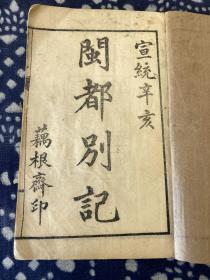 宣統辛亥
閩都別記
藕根齋印